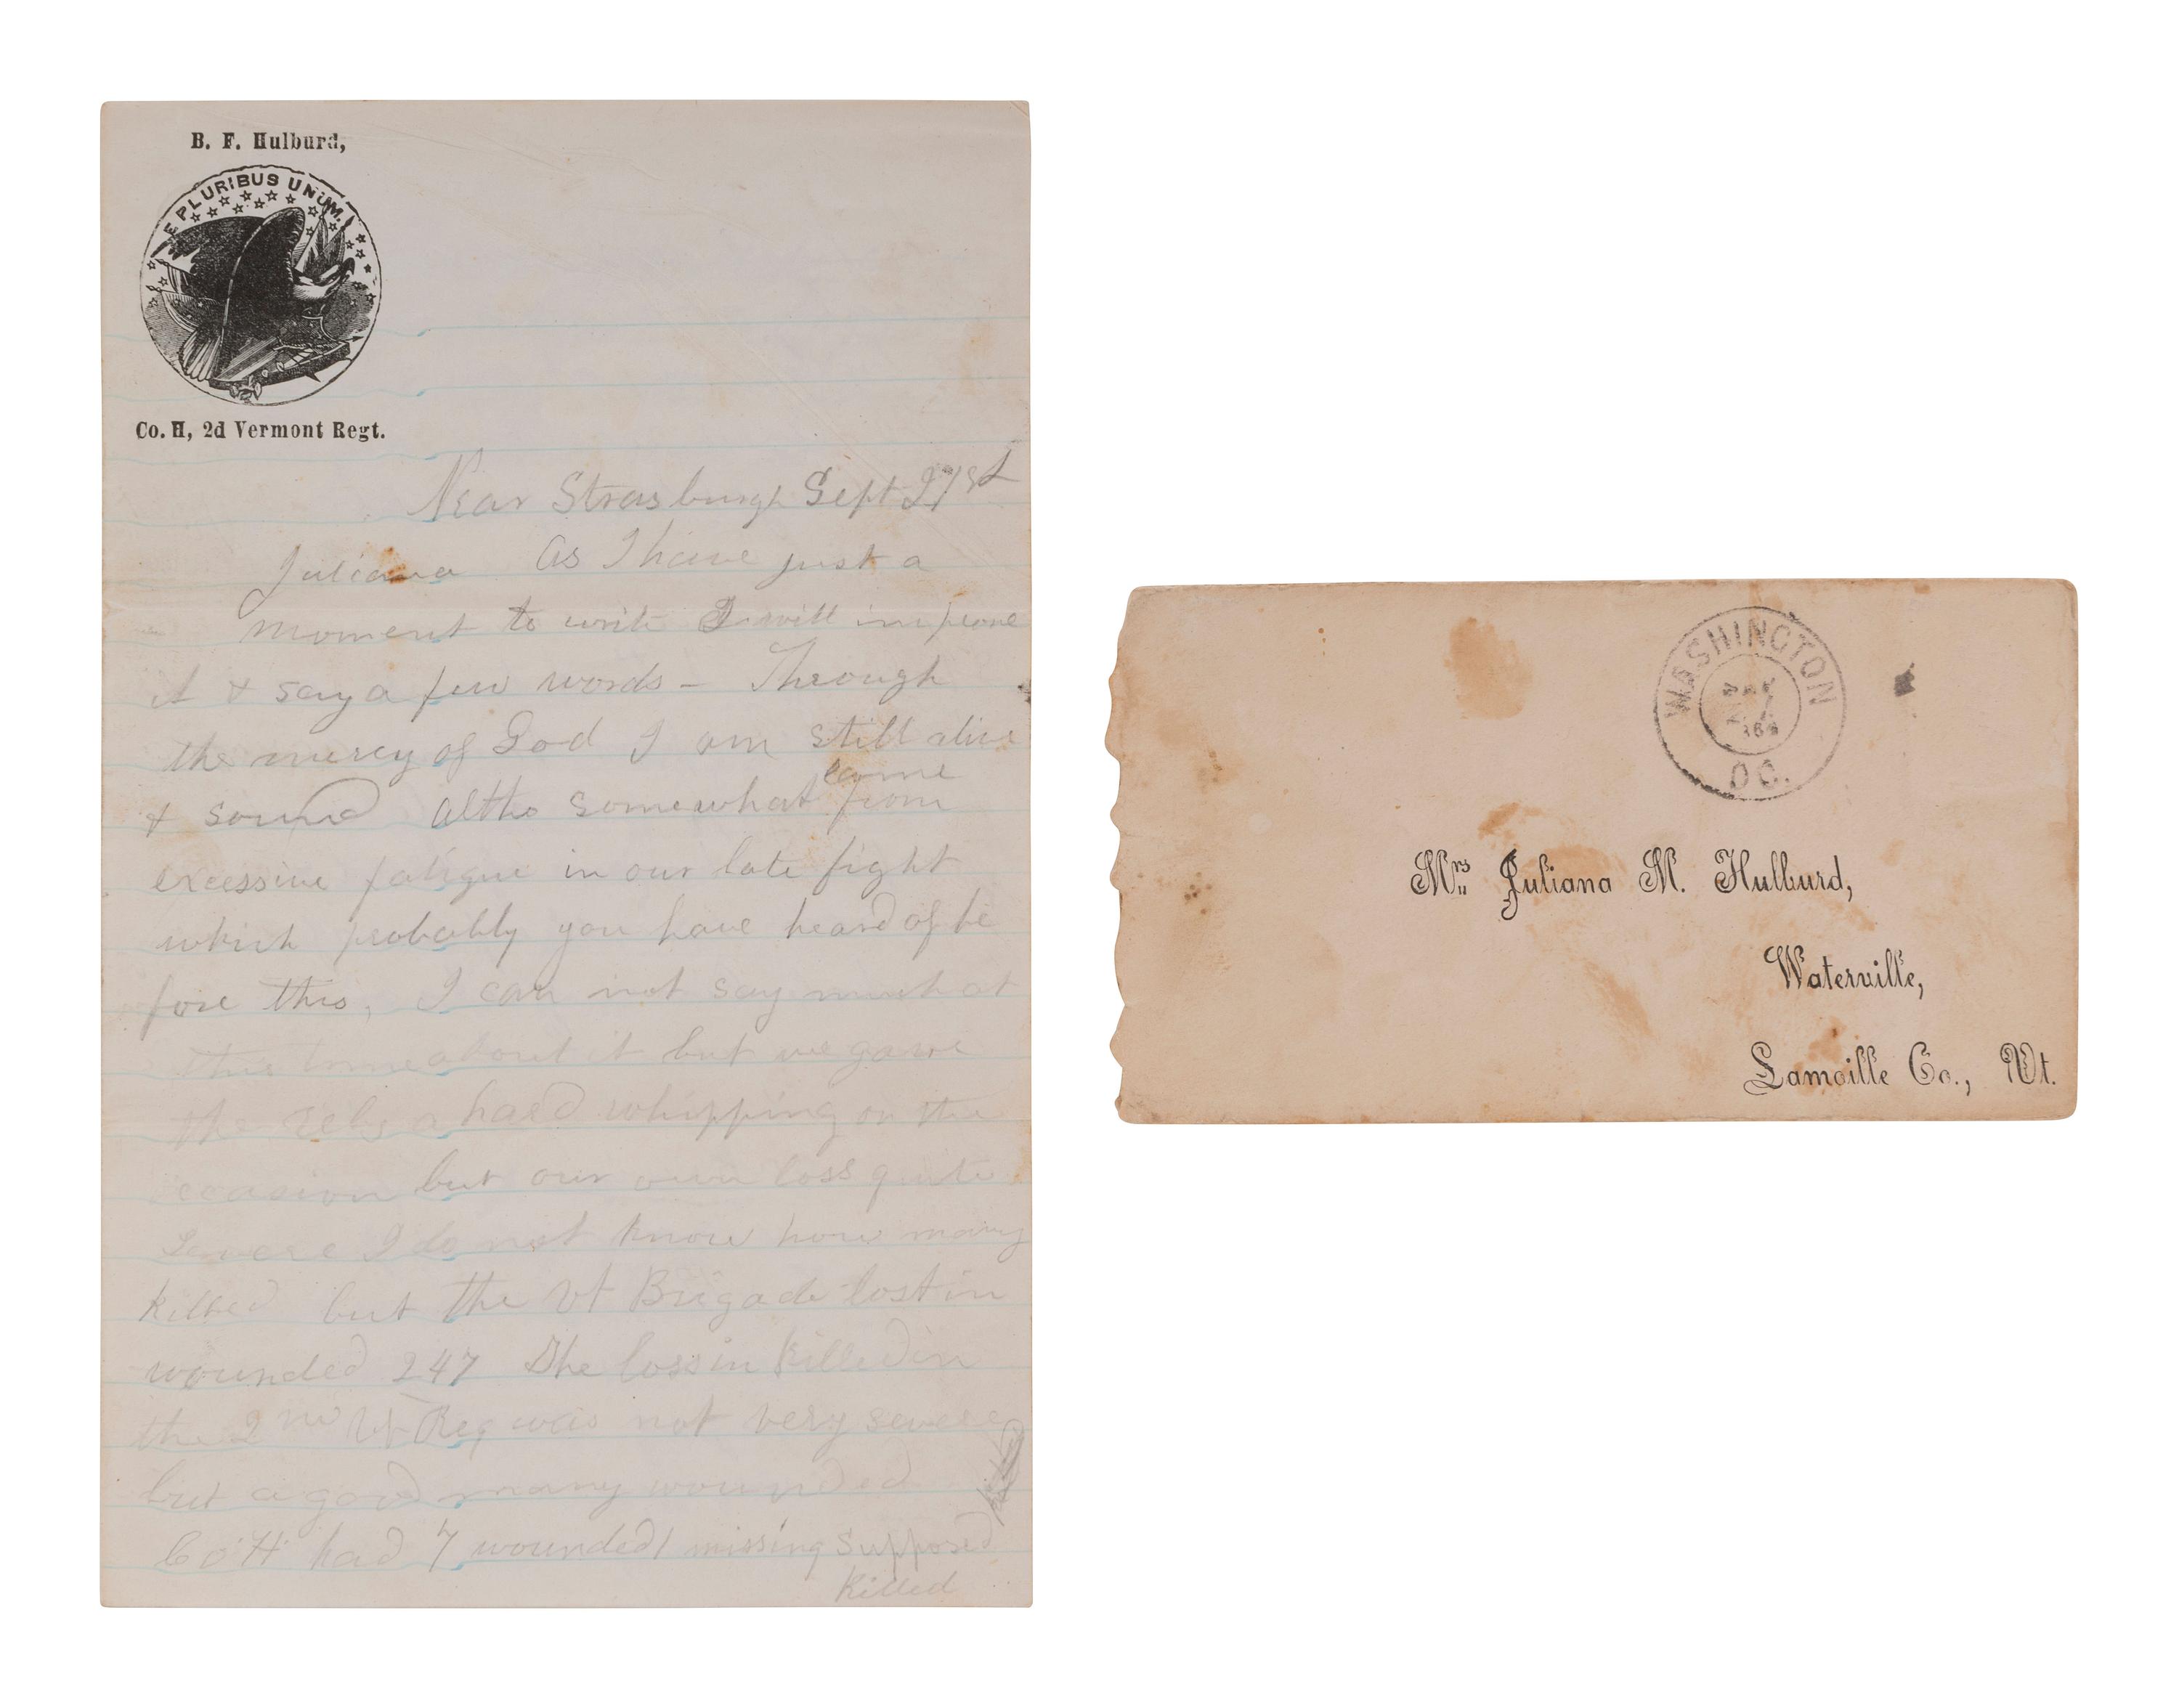 B. F. Hulburd,
E PLURIBUS UNUM.
Co. H, 2d Vermont Regt.
Near Strasburgh Sept
Juliana As I have just a
moment to write I will improve
it & say a few words – Through
the mercy of God I am still alive
& sound altho somewhat lame from
excessive fatigue in our late fight
which probably you have heard of be
fore this, I can not say much at
this time about it but we gave
the rebs a hard whipping on the
occasion but our own loss quite
severe I do not know how many
killed but the Vt Brigade lost in
wounded 247 The loss in killed in
the 2nd Vt Reg was not very severe
but a good many wounded
Co "H" had 7 wounded 1 missing supposed
killed
WASHINGTON
D.C.
Mrs Juliana M. Hulburd,
Waterville,
Lamoille Co., Vt.